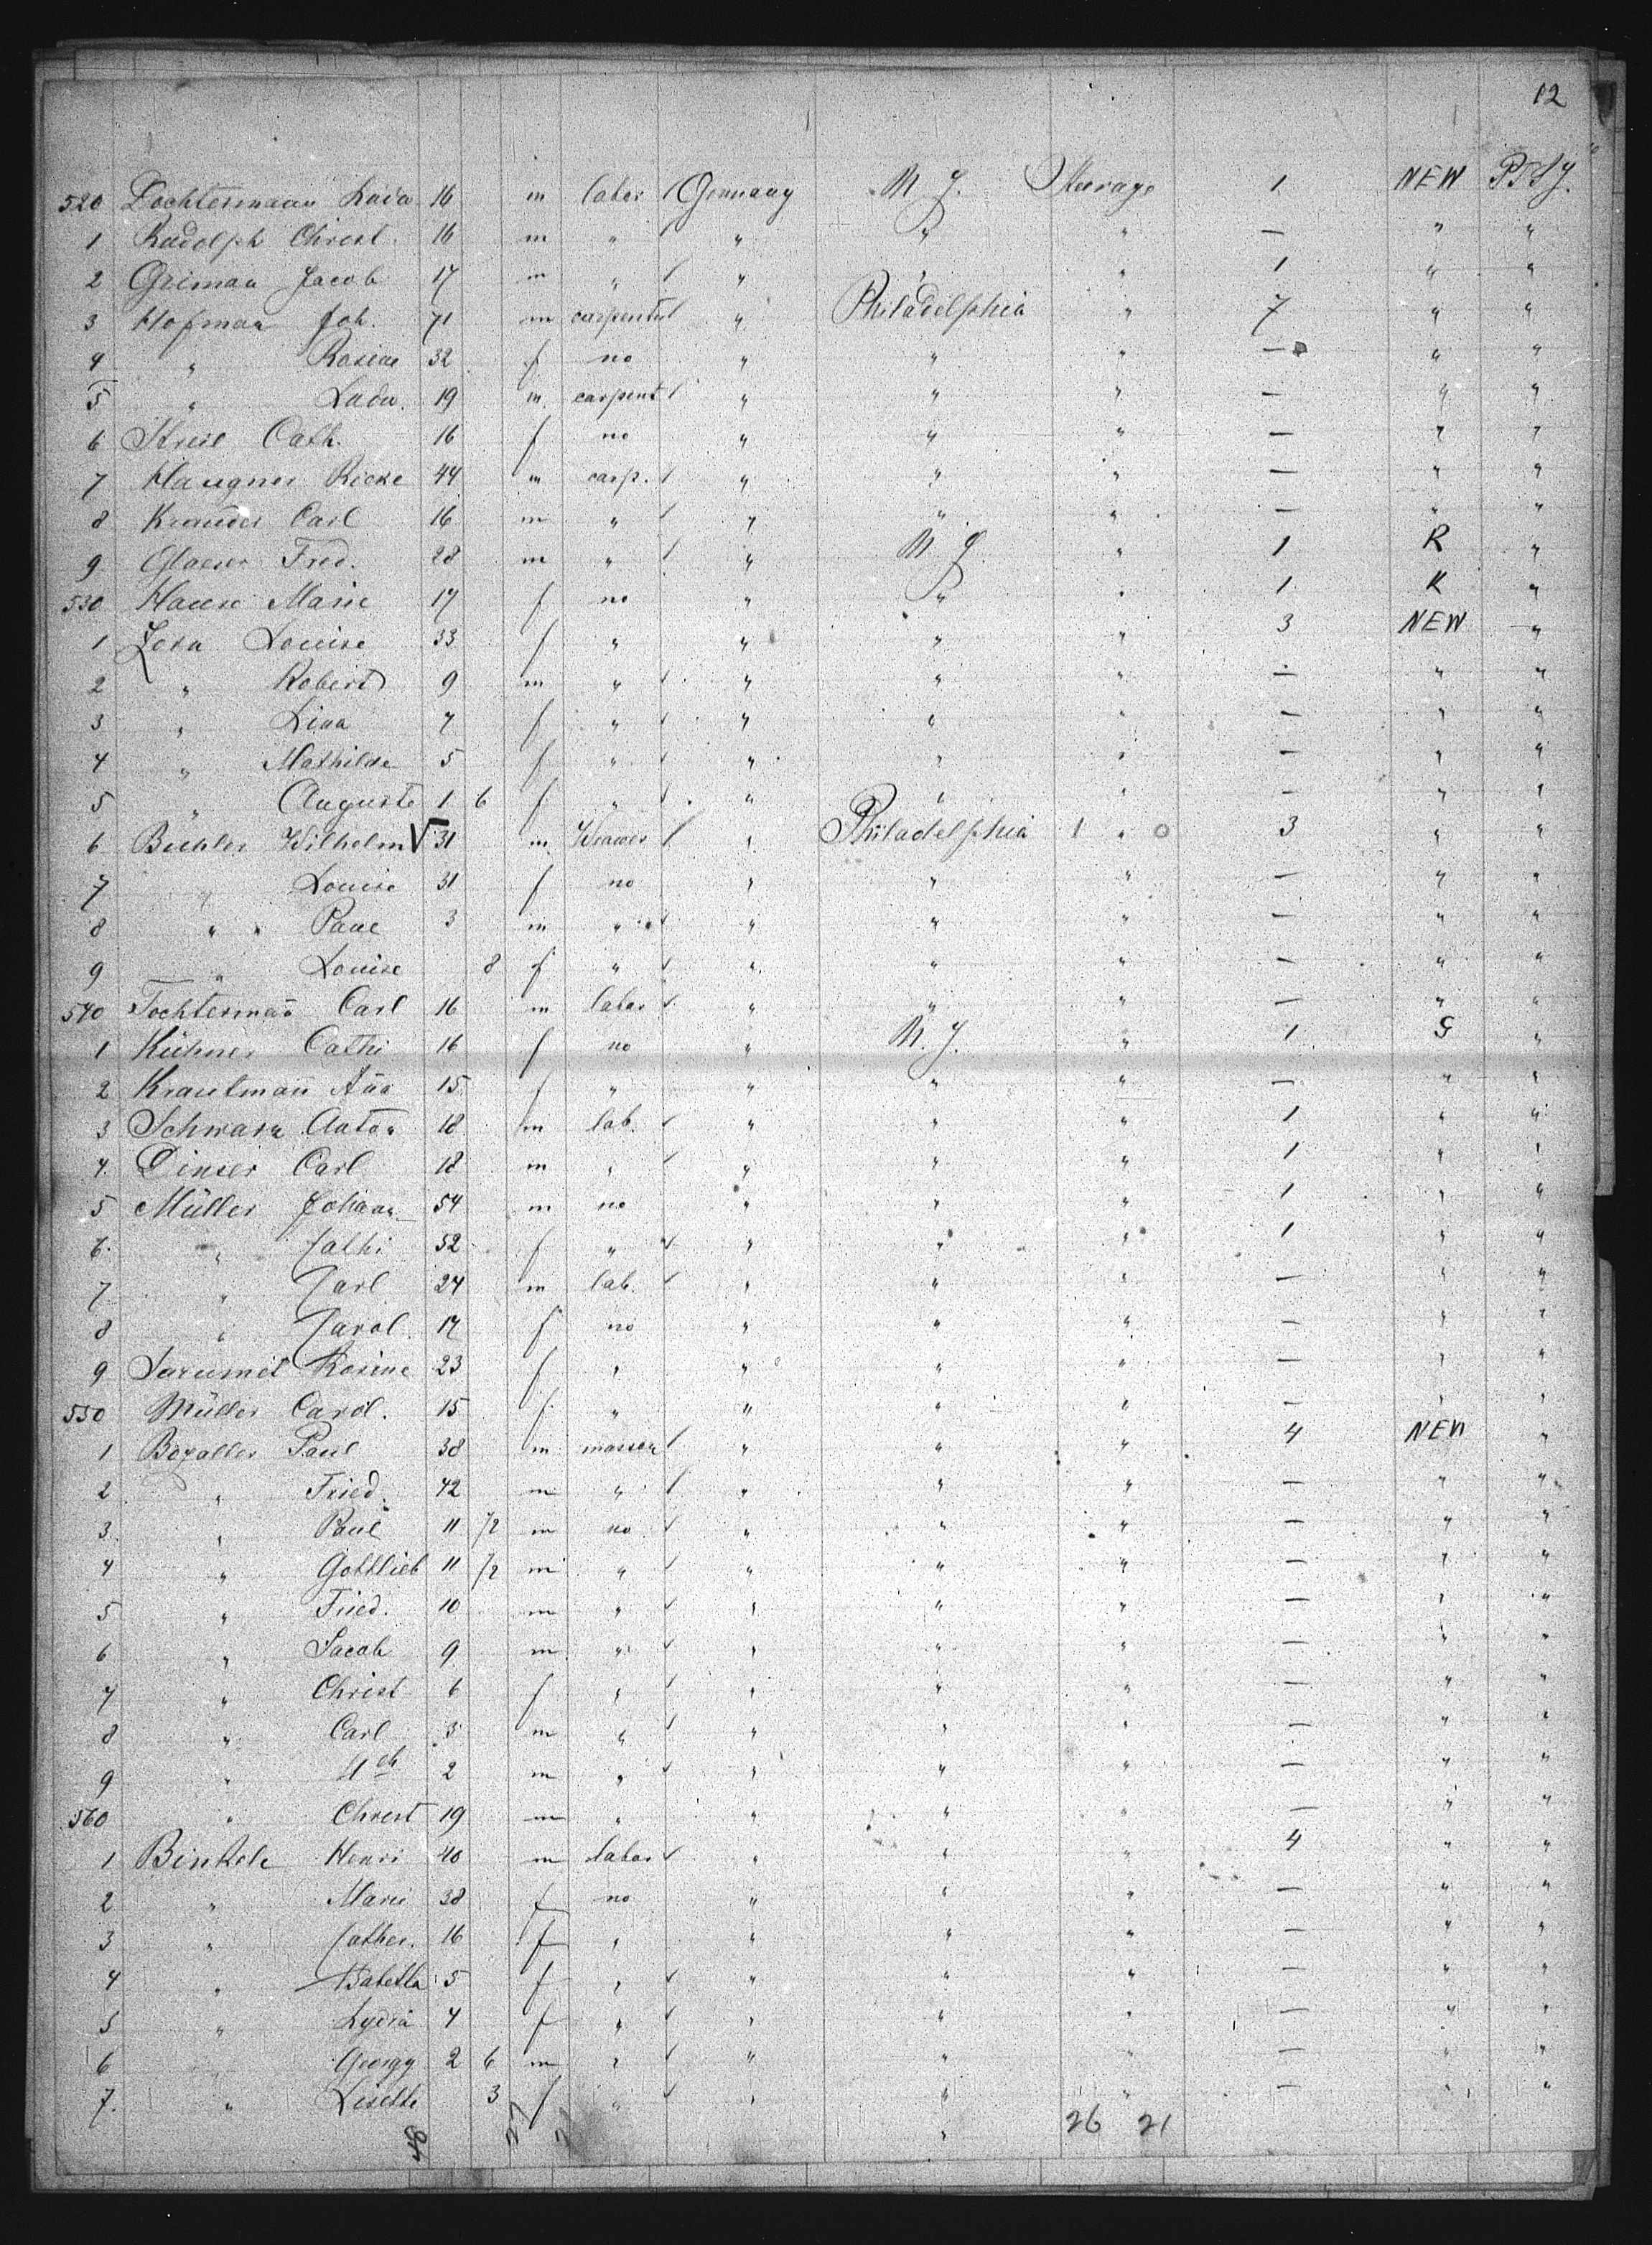 12
520 Tochtermann 16 m labor Germany N. Y. Steerage 1 NEW
1 Rudolph Christ. 16 m " " " " — " "
2 Griman Jacob 17 m " " " " 1 " "
3 Hofman Joh. 71 m " Philadelphia " 7 " "
4 " Rosine 32 f no " " " — " "
5 " Ludw. 19 m carpent " " " — " "
6 Cath. 16 f no " " " — " "
7 Haugner Ricke 44 m carp. " " " — " "
8 Carl 16 m " " " " — " "
9 Glaeser Fred. 28 m " " N. Y. " 1 R "
530 Marie 17 f no " " " 1 R "
1 Louise 33 f " " " " 3 NEW "
2 " Robert 9 m " " " " — " "
3 " Lina 7 f " " " " — " "
4 " Mathilde 5 f " " " " — " "
5 " Auguste 1 6 f " " " " — " "
6 Bühler Wilhelm V 31 m Weawer " Philadelphia 1 " 0 3 " "
7 " Louise 31 f no " " " — " "
8 " " Paul 3 m " " " " — " "
9 " Louise 8 f " " " " — " "
540 Tochtermañ Carl 16 m labor " " " — " "
1 Kühner Cathi 16 f no " N. Y. " 1 G "
2 Krautmañ Aña 15 f " " " " — " "
3 Schwarz Anton 18 m lab. " " " 1 " "
4. Dinser Carl 18 m " " " " 1 " "
5 Müller Johann 54 m no " " " 1 " "
6. " Cathi 52 f " " " " 1 " "
7 " Carl 24 m lab. " " " — " "
8 " Carol. 17 f no " " " — " "
9 Rosine 23 f " " " " — " "
550 Müller Carol. 15 f " " " " — " "
1 Paul 38 m masson " " " 4 NEW "
2 " Fried. 42 m " " " " — " "
3. " Paul 11 /2 m no " " " — " "
4 " Gottlieb 11 /2 m " " " " — " "
5 " Fried. 10 m " " " " — " "
6 " Jacob 9 m " " " " — " "
7 " Christ 6 f " " " " — " "
8 " Carl 3 m " " " " — " "
9 " 2 m " " " " — " "
560 " Christ 19 m " " " " — " "
1 Binkele Henri 40 m labor " " " 4 " "
2 " Marie 38 f no " " " — " "
3 " Cather. 16 f " " " " — " "
4 " Babetta 5 f " " " " — " "
5 " Lydia 4 f " " " " — " "
6 " Georgy 2 6 m " " " " — " "
7. " Lisette 3 f " " " " — " "
26 21